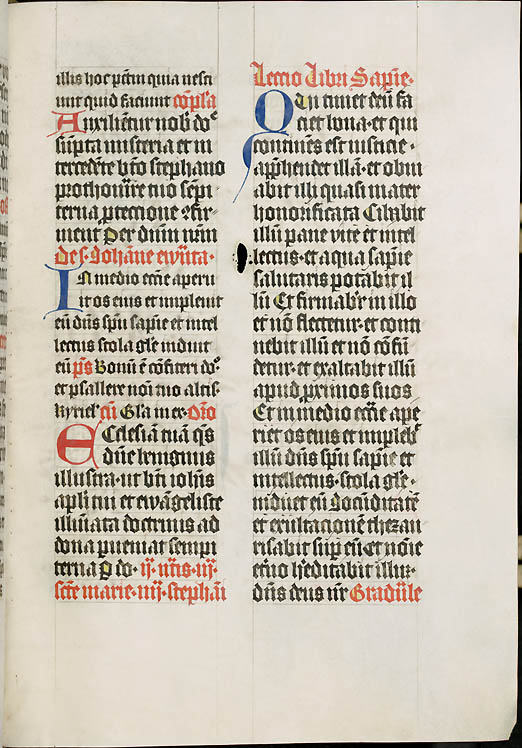 illis hoc pctm quia nesci
unt quid faciunt cōplā
Auxiliētur nob̄ dō
sūpta misteria et in
tercedēte bt̄o stephano
prothom̄re tuo sēpi
terna ꝓtectione ꝯfir
ment Per dnm̄ nr̄m
de s. Johāne ewūta.
In medio ecc̄ie aperu
it os eius et impleuit
eū dn̄s spū sapīe et intel
lectus stola gl̄e induit
eū p̄s Bonū ē cōfiteri dō
et psallere nōi tuo altis
kyriel̄ cū Gl̄a in ex. Or̄o
Ecclesiā tuā q̄s
dn̄e benignus
illustra. ut bt̄i ioh̄is
apl̄i tui et ewāgeliste
illūīata doctrinis ad
dona ꝑueniat sempi
terna ꝑ dō. ij. nt̄is. iij.
scē marie. iiij. stephāi
Lectio Libri Sapīe.
Qui timet deū fa
ciet bona. et qui
continens est iusticie.
app̄hendet illā. et obui
abit illi quasi mater
honorificata Cibabit
illū pane vite et intel
lectus. et aqua sapīe
salutaris potabit il
lū Et firmabr̄ in illo
et nō flectetur. et conti
nebit illū et nō cōfū
detur. et exaltabit illū
apud ꝓximos suos
Et in medio ecc̄ie ape
riet os eius et implebit
illū dn̄s spū sapīe et
intellectus. stola gl̄e.
induet eū Jocūditatē
et exultationē thezau
risabit suꝑ eū. Et nōie
et̄no h̄editabit illū.
dn̄s deus nr̄ Gradūle